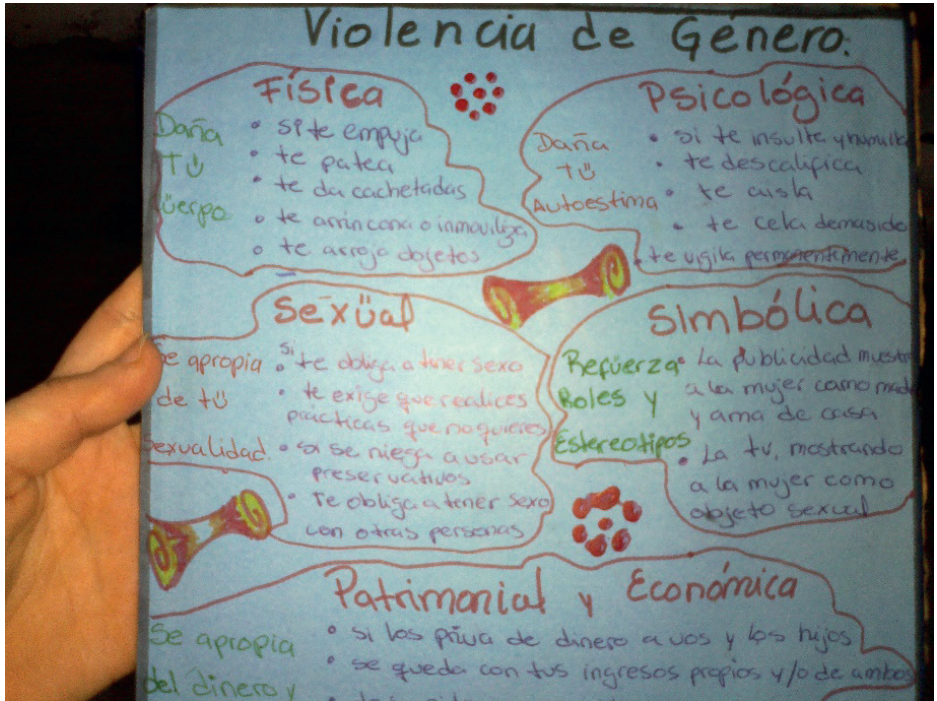 Violencia de Género.
Física
Daña
TÚ
cüerpo
• si te empuja
• te patea
• te da cachetadas
• te arrincona o inmoviliza
• te arroja objetos
Psicológica
Daña
TÚ
Autoestima
• si te insulta y humilla
• te descalifica
• te aisla
• te cela demasido
• te vigila permanentemente
Sexüal
Se apropia
de tú
sexualidad
• si te obliga a tener sexo
• te exige que realices
prácticas que no quieres
• si se niega a usar
preservativos
• Te obliga a tener sexo
con otras personas
Simbólica
Refuerza
Roles y
Estereotipos
• La publicidad muestra
a la mujer como madre
y ama de casa
• La tv, mostrando
a la mujer como
objeto sexual
Patrimonial y Económica
Se apropia
del dinero y
• si los priva de dinero a vos y los hijos
• se queda con tus ingresos propios y/o de ambos